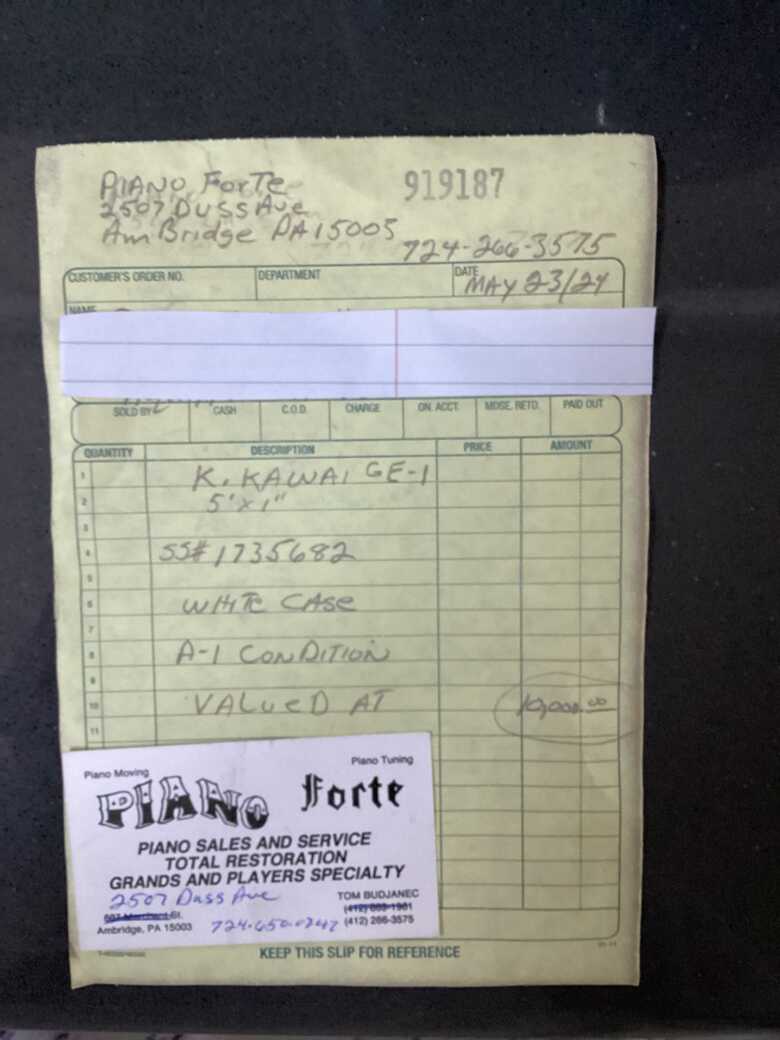 PIANO FORTE 919187
2507 DUSS AVE
AmBridge PA 15005
724-266-3575
CUSTOMER'S ORDER NO. DEPARTMENT DATE
MAY 23/24
NAME
SOLD BY CASH C.O.D. CHARGE ON. ACCT. MDSE. RETD. PAID OUT
QUANTITY DESCRIPTION PRICE AMOUNT
1 K. KAWAI GE-1
2 5'x1"
3
4 SS# 1735682
5
6 WHITE CASE
7
8 A-1 CONDITION
9
10 VALUED AT 10,000.00
11
Piano Moving Piano Tuning
PIANO Forte
PIANO SALES AND SERVICE
TOTAL RESTORATION
GRANDS AND PLAYERS SPECIALTY
2507 Duss Ave TOM BUDJANEC
607 Merchant St.
Ambridge, PA 15003 724-650-0847 (412) 266-3575
KEEP THIS SLIP FOR REFERENCE